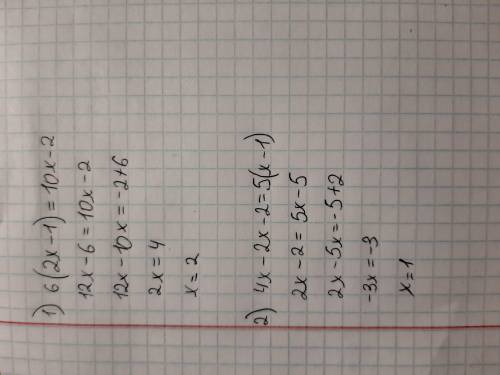 1) 6(2x-1)=10x-2
12x-6=10x-2
12x-10x=-2+6
2x=4
x=2
2) 4x-2x-2=5(x-1)
2x-2=5x-5
2x-5x=-5+2
-3x=-3
x=1